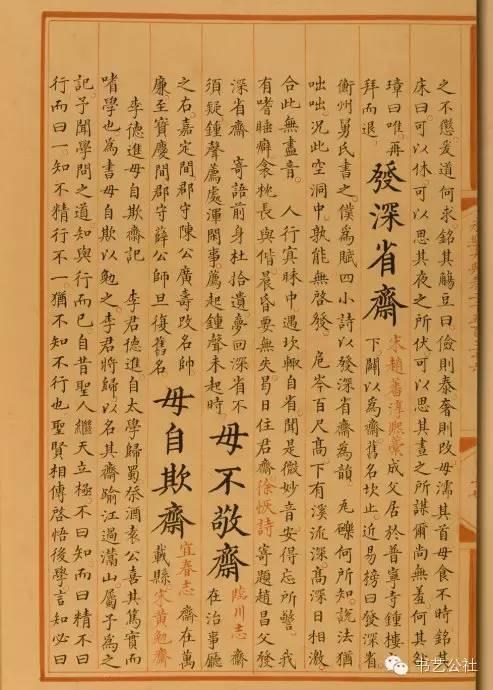 之不愆爰道何求銘其觴豆曰儉則泰奢則改毋濡其首毋食不時銘其
床曰可以休可以思其夜之所伏可以思其晝之所謀爾尚無羞何其然
璋曰唯再
拜而退
發深省齋
宋趙善淳熙藁成父居於普寧寺鐘樓
下闢以為齋舊名坎止近易榜曰發深省
衡州舅氏書之僕為賦四小詩以發深省齋為韻 瓦礫何所知說法猶
咄咄況此空洞中孰能無啓發 危岑百尺高下有溪流深高深日相激
合此無盡音 人行冥昧中遇坎輒自省聞是微妙音安得忘所警 我
有嗜睡癖衾枕長與偕晨昏要無失曷日住君齋徐恢詩寄題趙昌父發
深省齋 寄語前身杜拾遺夢回深省不
須疑鍾聲薦處渾閑事薦起鍾聲未起時
毋不敬齋
陵川志 齋
在治事廳
之右嘉定間郡守陳公廣壽改名帥
廉至寶慶間郡守薛公師旦復舊名
毋自欺齋
宜春志 齋在萬
載縣宋黃勉齋
李德進毋自欺齋記 李君德進自太學歸蜀祭酒袁公喜其篤實而
嗜學也為書毋自欺以勉之李君將歸以名其齋踰江過灊山屬予為之
記予聞學問之道知與行而已自昔聖人繼天立極不曰知而曰精不曰
行而曰一知不精行不一猶不知不行也聖賢相傳啓悟後學言知必曰
书艺公社